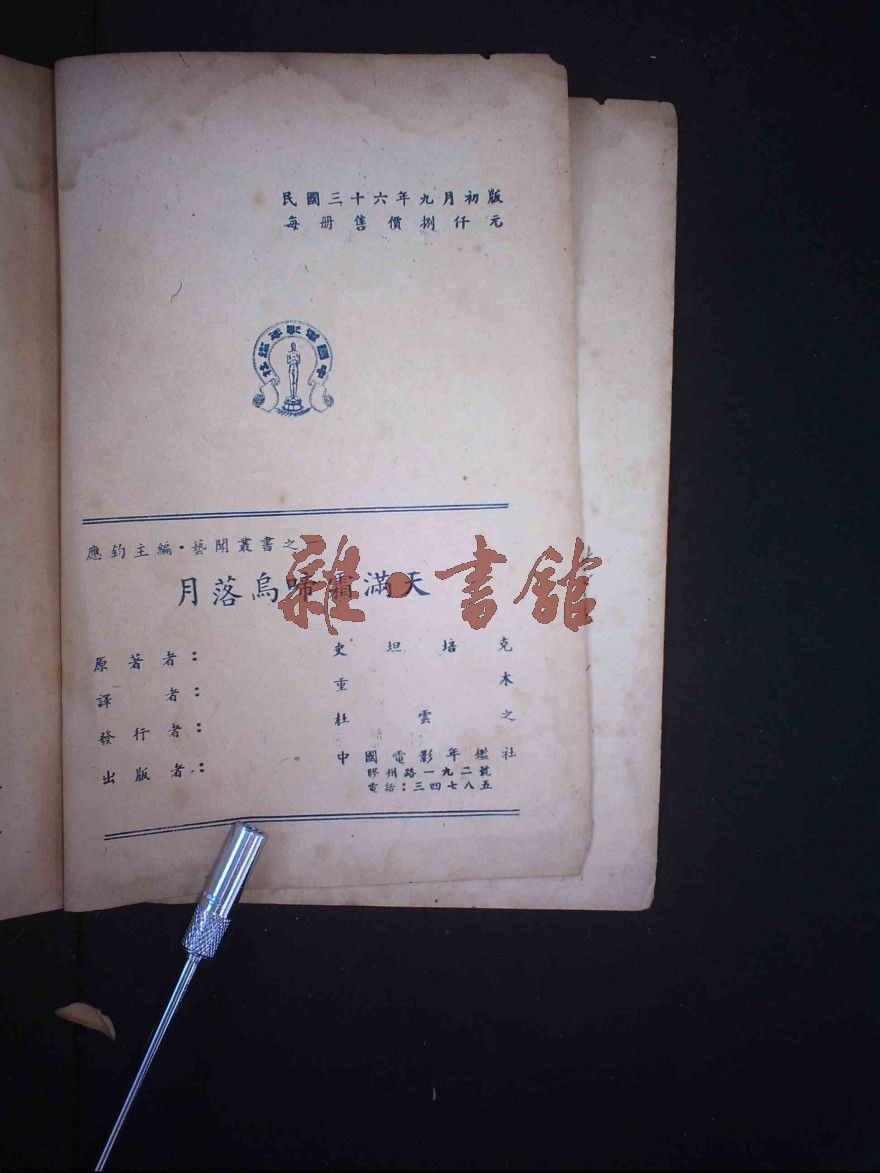 民國三十六年九月初版
每册售價捌仟元
中國電影年鑑社
應鈞主編·藝聞叢書之一
月落烏啼霜滿天
雜·書館
原著者：史坦培克
譯者：重木
發行者：杜雲之
出版者：中國電影年鑑社
膠州路一九二號
電話：三四七八五